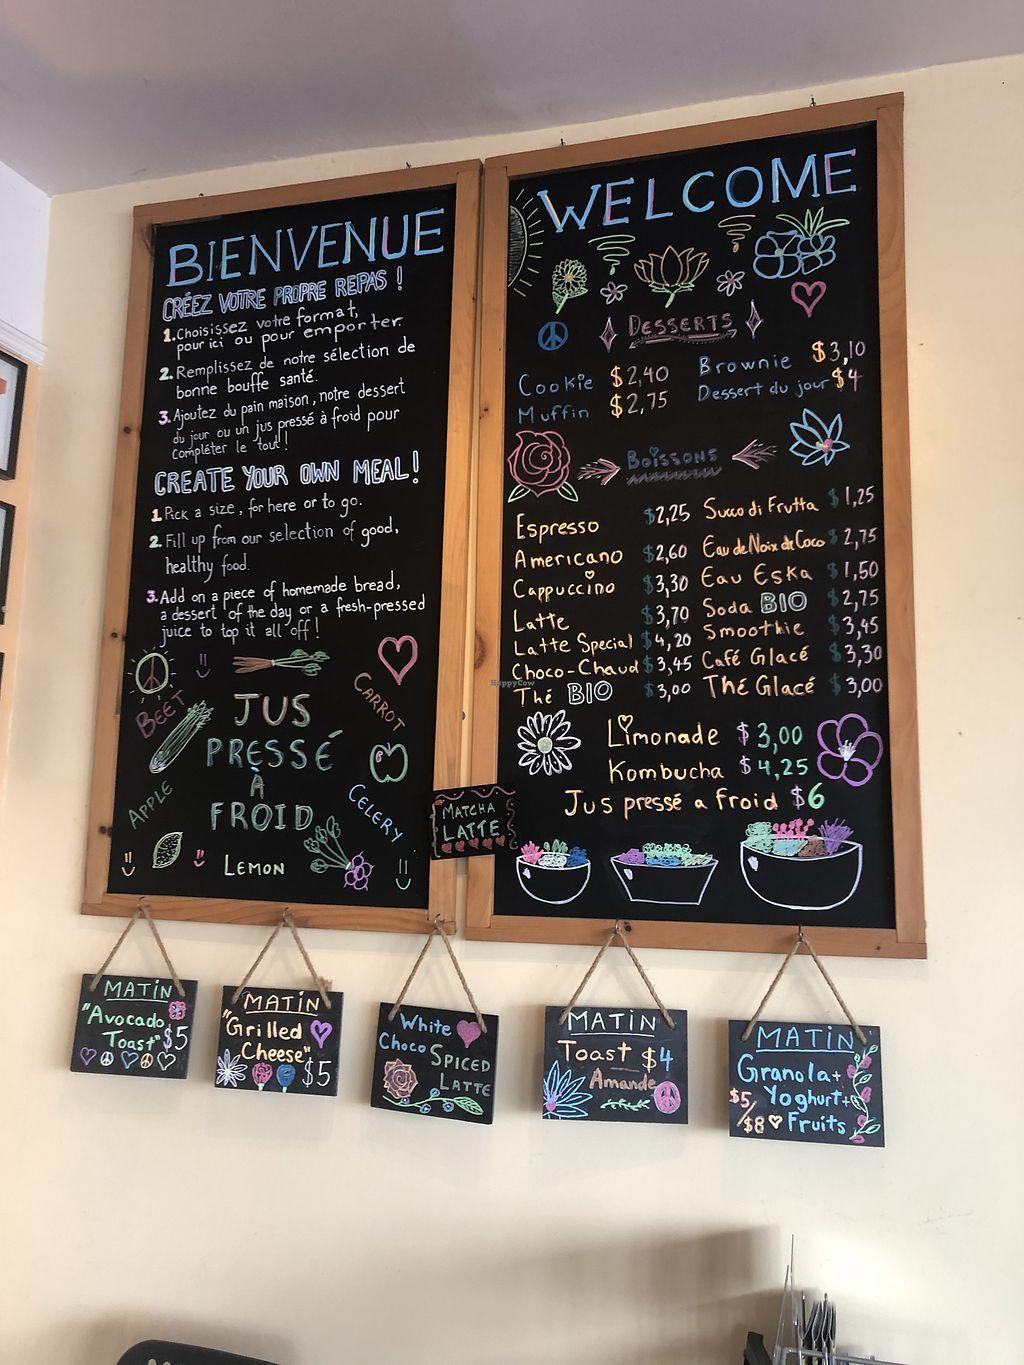 BIENVENUE
CRÉEZ VOTRE PROPRE REPAS !
1. Choisissez votre format,
pour ici ou pour emporter.
2. Remplissez de notre sélection de
bonne bouffe santé.
3. Ajoutez du pain maison, notre dessert
du jour ou un jus pressé à froid pour
compléter le tout!
CREATE YOUR OWN MEAL!
1. Pick a size, for here or to go.
2. Fill up from our selection of good,
healthy food.
3. Add on a piece of homemade bread,
a dessert of the day or a fresh-pressed
juice to top it all off!
BEET
CARROT
JUS
PRESSÉ
À
FROID
APPLE
CELERY
LEMON
MATCHA
LATTE
WELCOME
DESSERTS
Cookie $2,40
Muffin $2,75
Brownie $3,10
Dessert du jour $4
Boissons
Espresso $2,25
Americano $2,60
Cappuccino $3,30
Latte $3,70
Latte Special $4,20
Choco-Chaud $3,45
Thé BIO $3,00
Succo di Frutta $1,25
Eau de Noix de Coco $2,75
Eau Eska $1,50
Soda BIO $2,75
Smoothie $3,45
Café Glacé $3,30
Thé Glacé $3,00
HappyCow
Limonade $3,00
Kombucha $4,25
Jus pressé a froid $6
MATIN
"Avocado
Toast" $5
MATIN
"Grilled
Cheese"
$5
White
Choco SPICED
LATTE
MATIN
Toast $4
Amande
MATIN
Granola+
Yoghurt+
$5/$8 Fruits